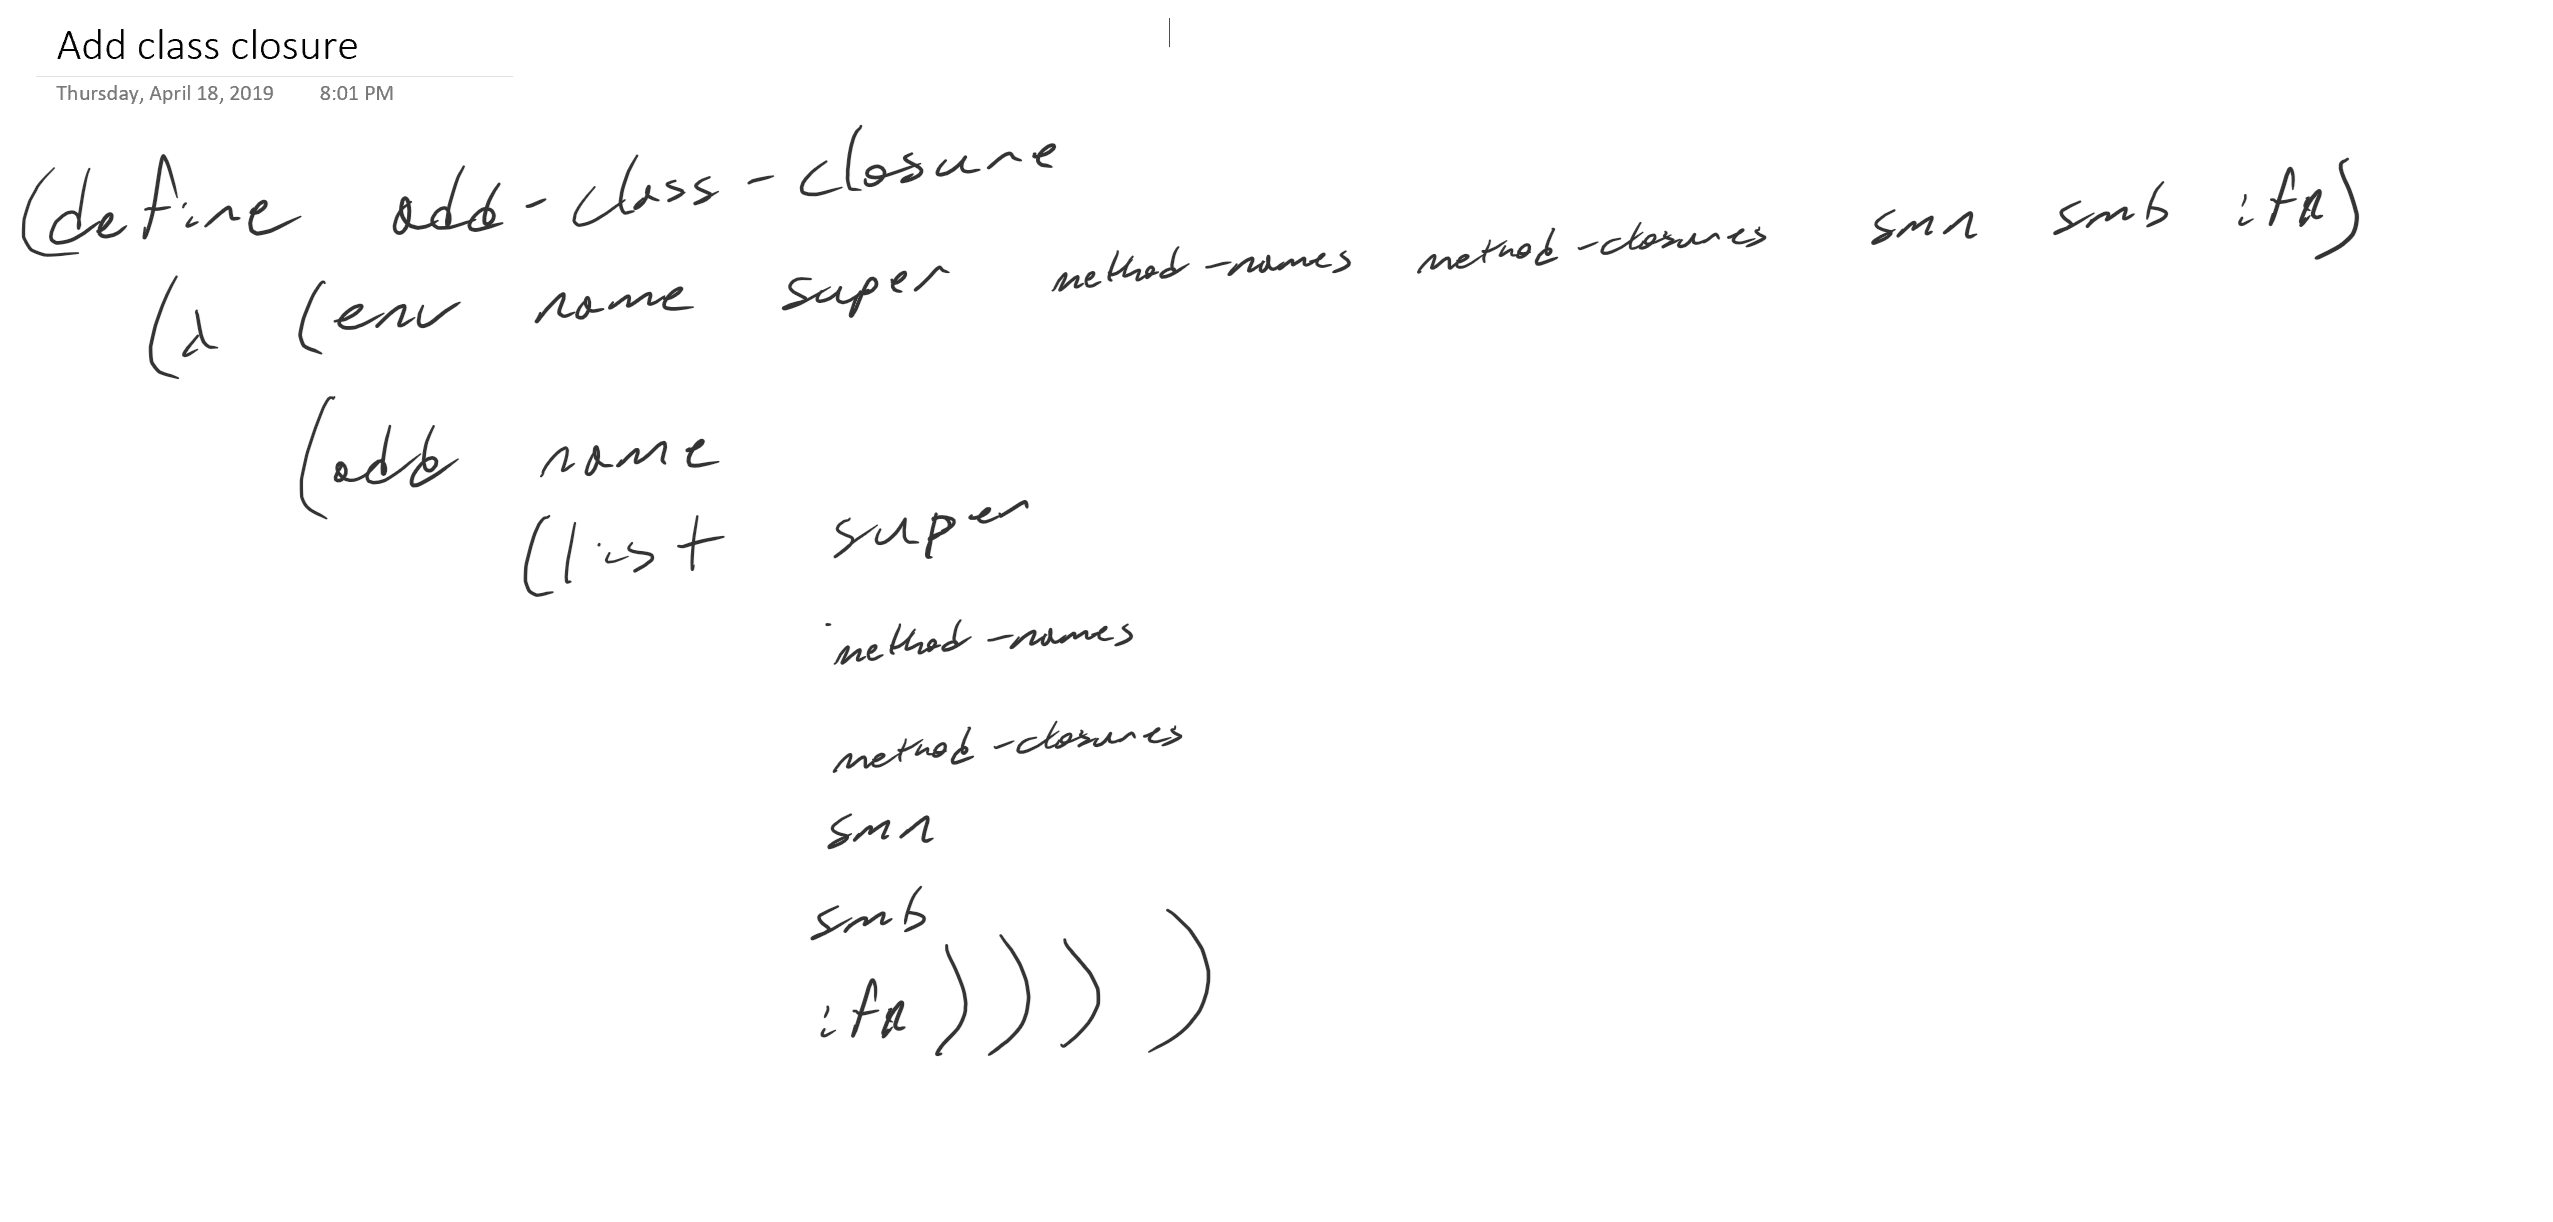 Add class closure
Thursday, April 18, 2019 8:01 PM
(define add-class-closure
(λ (env name super method-names method-closures smn smb ifn)
(add name
(list super
method-names
method-closures
smn
smb
ifn))))